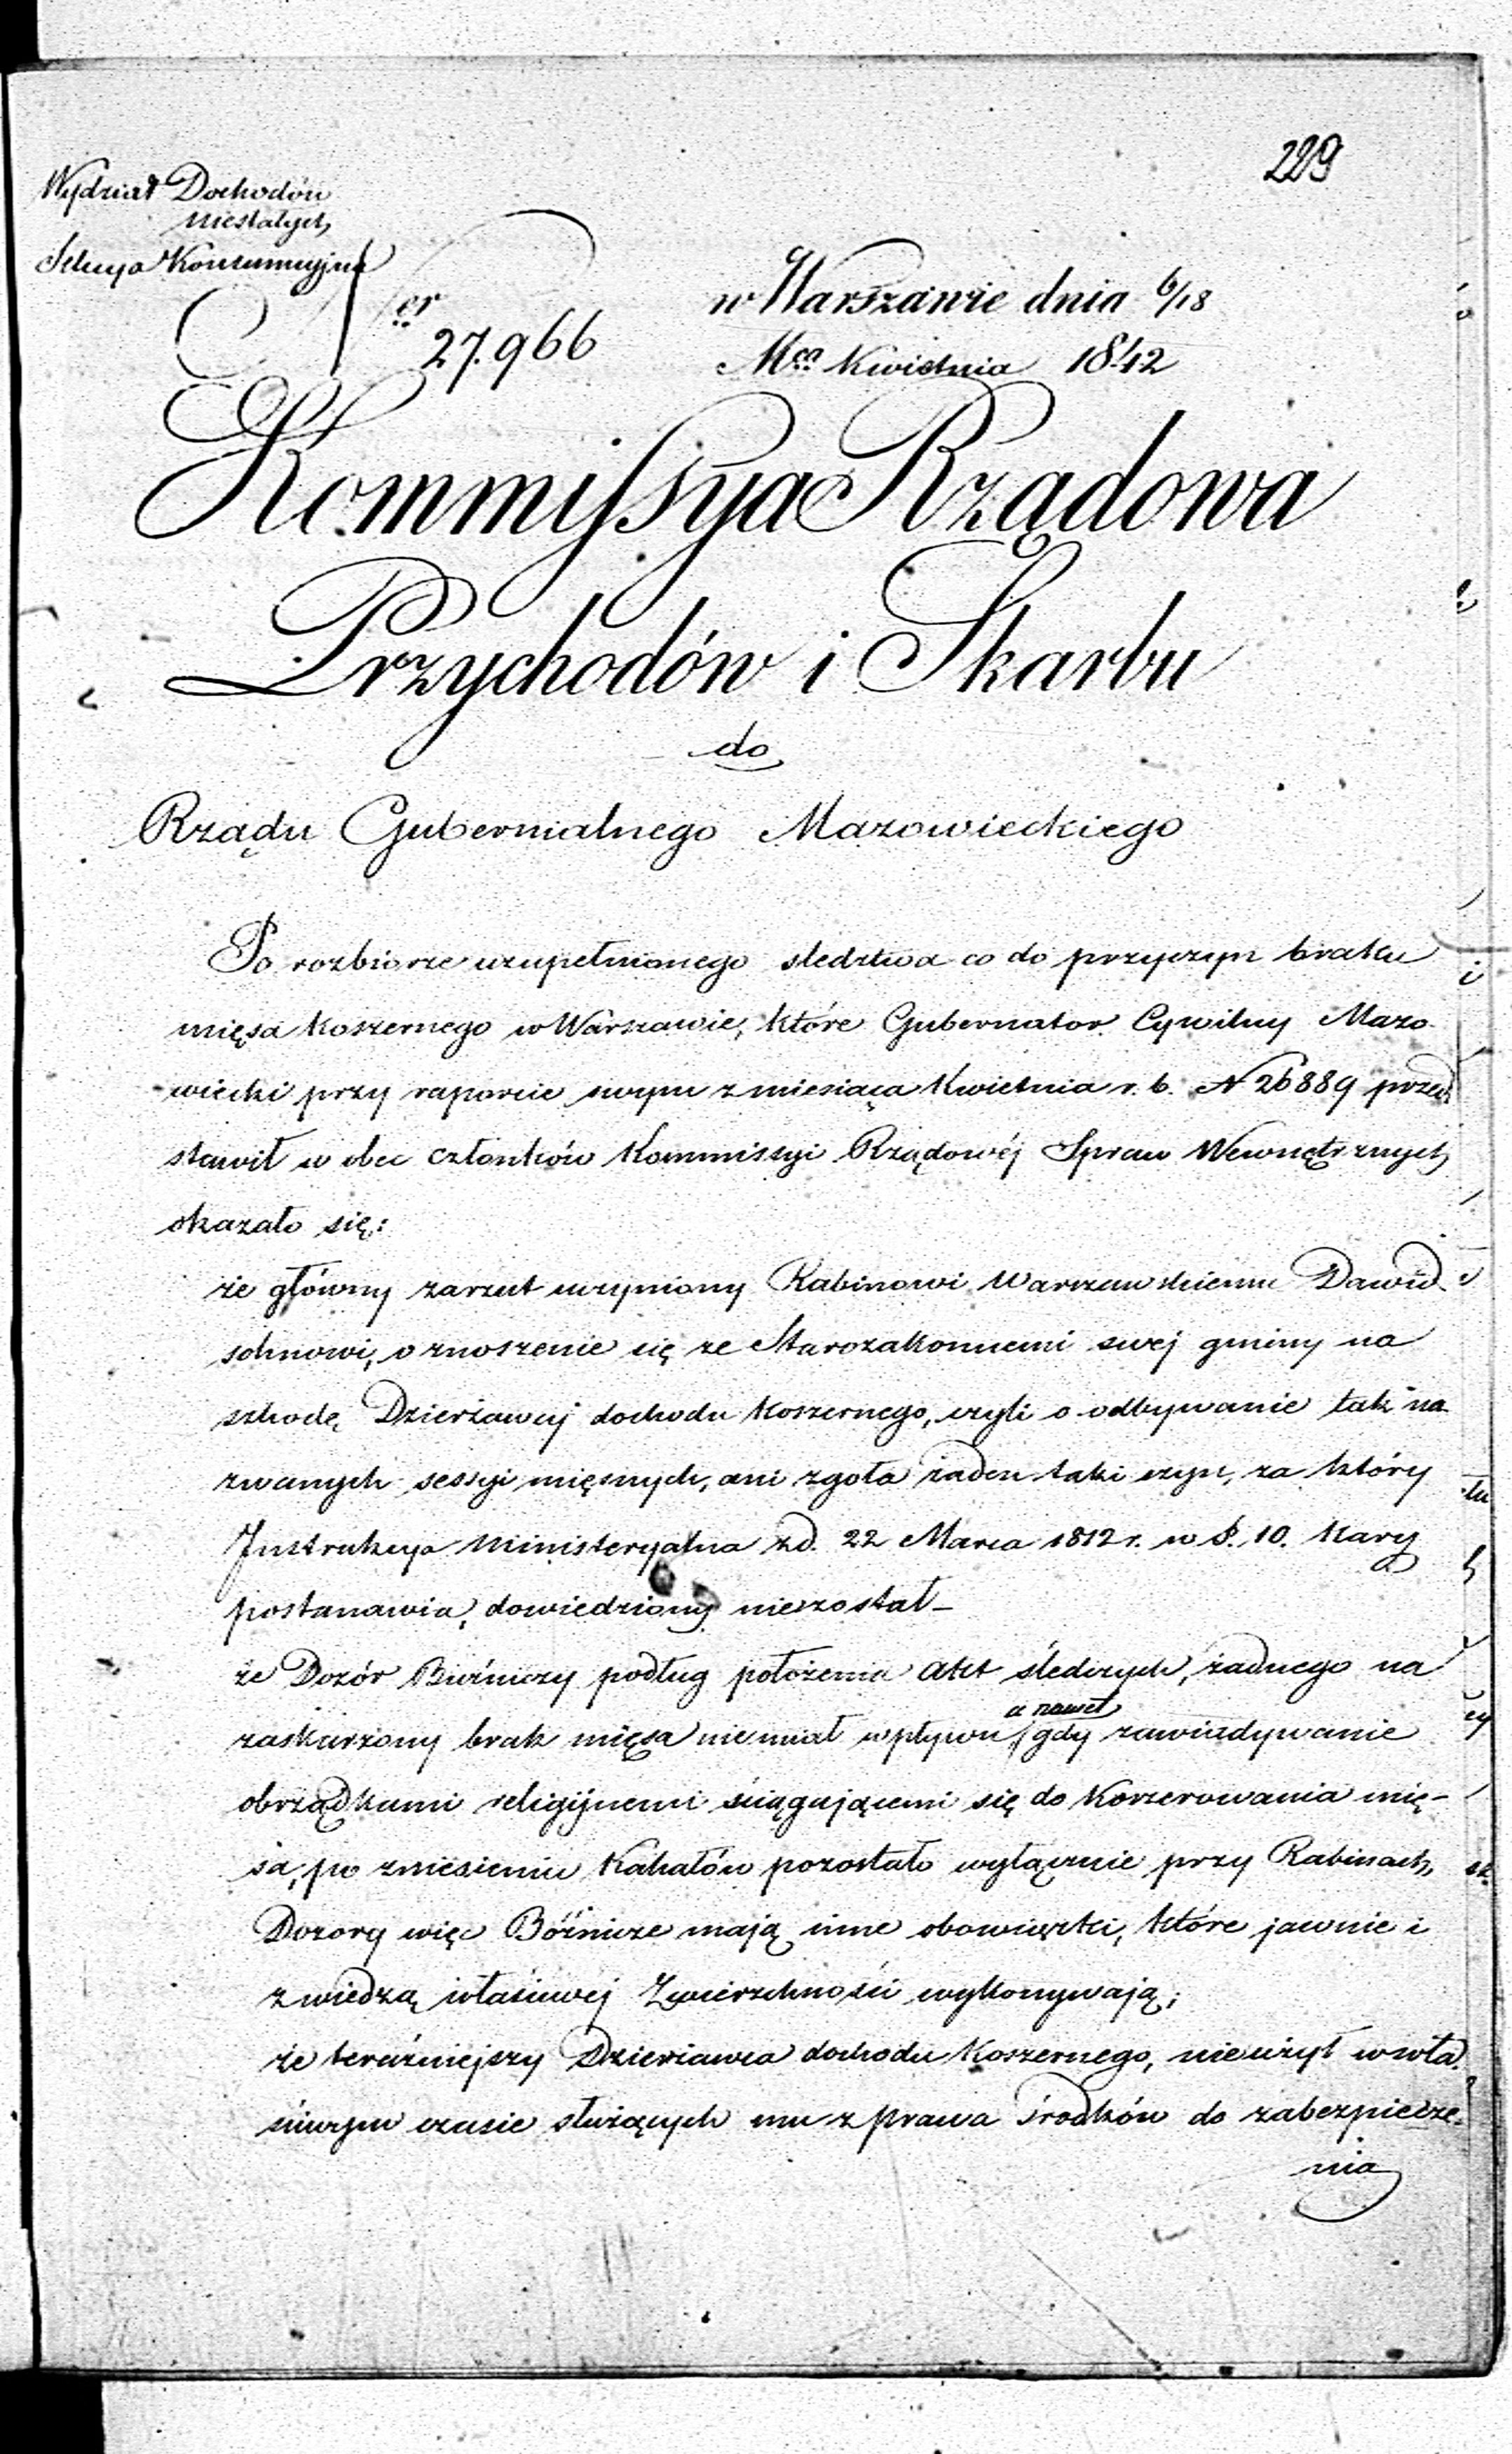 229
Wydział Dochodów
niestałych
Sekcya Konsumcyjna
Ner 27.966
w Warszawie dnia 6/18
Mca Kwietnia 1842
Kommissya Rządowa
Przychodów i Skarbu
do
Rządu Gubernialnego Mazowieckiego
Po rozbiorze uzupełnionego śledztwa co do przyczyn braku
mięsa koszernego w Warszawie, które Gubernator Cywilny Mazo-
wiecki przy raporcie swym z miesiąca Kwietnia r. b. N 26889 przed
stawił w obec członków Kommissyi Rządowéj Spraw Wewnętrznych
okazało się:
że główny zarzut uczyniony Rabinowi Warszawskiemu Dawid-
sohnowi, o znoszenie się ze Starozakonnemi swej gminy na
szkodę Dzierżawcy dochodu koszernego, czyli o odbywanie tak na-
zwanych sessyi mięsnych, ani zgoła żaden taki czyn, za który
Instrukcya Ministeryalna z d. 22 Marca 1812 r. w §. 10. kary
postanawia, dowiedziony niezostał_
że Dozór Bużniczy podług położenia akt śledczych, żadnego na
zaskarżony brak mięsa niemiał wpływu, a nawet gdy zawiadywanie
obrządkami religijnemi ściągającemi się do koszerowania mię-
sa, po zniesieniu Kahałów pozostało wyłącznie przy Rabinach,
Dozory więc Bóźnicze mają inne obowiązki, które jawnie i
z wiedzą właściwej Zwierzchności wykonywają;
że teraźniejszy Dzierżawca dochodu koszernego, nieużył w wła-
ściwym czasie służących mu z prawa środków do zabezpiecze-
nia